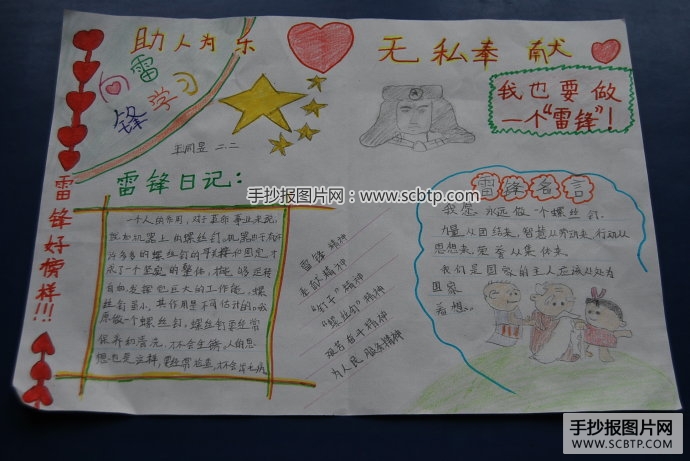 助人为乐
无私奉献
向雷
锋学习
我也要做
一个“雷锋”！
王同昱 二.二
雷锋日记：
手抄报图片网：www.scbtp.com
雷锋名言
一个人的作用，对于革命事业来说，
就如机器上的螺丝钉。机器由于有
许多多的螺丝钉的联接和固定，才
成了一个坚实的整体，才能够运转
自由，发挥它巨大的工作能。螺
丝钉虽小，其作用是不可估计的。我
愿做一个螺丝钉，螺丝钉要经常
保养和清洗，才不会生锈。人的思
想也是这样，要经常检查，才不会出毛病
雷锋精神
奉献精神
“钉子”精神
“螺丝钉”精神
艰苦奋斗精神
为人民服务精神
我愿永远做一个螺丝钉.
力量从团结来，智慧从劳动来，行动从
思想来，荣誉从集体来。
我们是国家的主人应该处处为
国家
着想。
雷锋好榜样!!!
手抄报图片网
WWW.SCBTP.COM